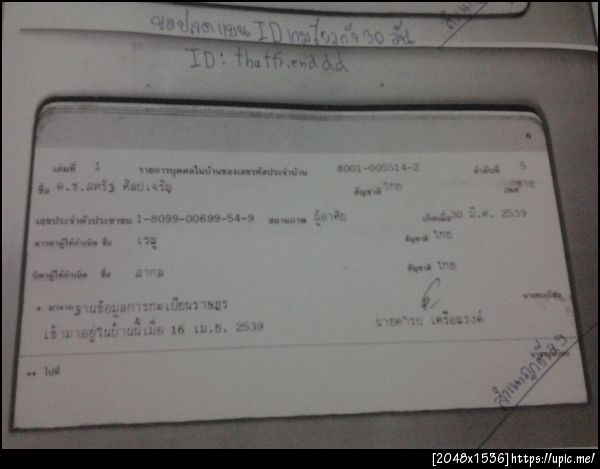 ขอปลดแบน ID เกมไยวกัง 30 วัน
ID: thatfrienddd
6
เล่มที่ 1 รายการบุคคลในบ้านของเลขรหัสประจำบ้าน 8001-005514-2 ลำดับที่ 5
ชื่อ ด.ช.สหรัฐ ศิลปเจริญ สัญชาติ ไทย เพศ ชาย
เลขประจำตัวประชาชน 1-8099-00699-54-9 สถานภาพ ผู้อาศัย เกิดเมื่อ 30 มี.ค. 2539
มารดาผู้ให้กำเนิด ชื่อ เรณู สัญชาติ ไทย
บิดาผู้ให้กำเนิด ชื่อ สากล สัญชาติ ไทย
* มาจาก ฐานข้อมูลการทะเบียนราษฎร
เข้ามาอยู่ในบ้านนี้เมื่อ 16 เม.ย. 2539 นายทะเบียน
** ไปที่
นายทะเบียน
สำเนาถูกต้อง
[2048x1536]https://upic.me/